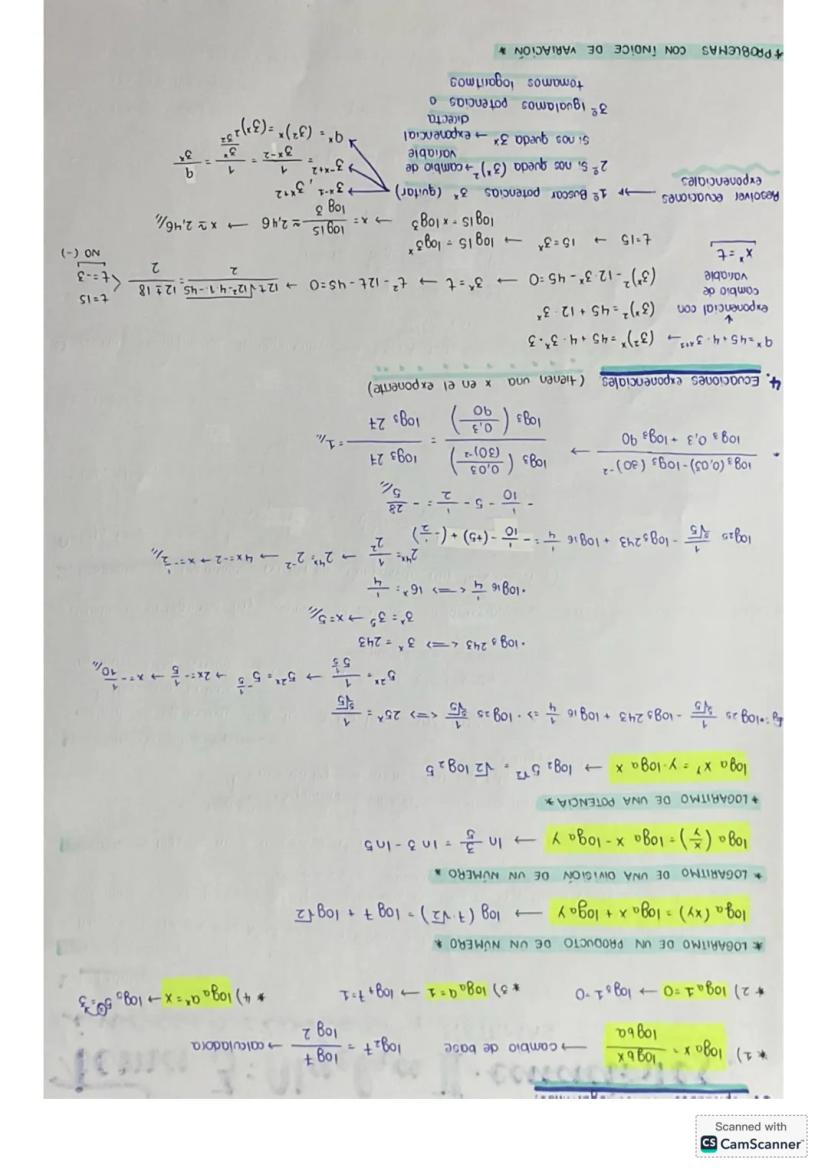 * 1) logₐ x = log_b x / log_b a → cambio de base log₂ 7 = log 7 / log 2 → calculadora
* 2) logₐ 1 = 0 → log₃ 1 = 0 * 3) logₐ a = 1 → log₇ 7 = 1 * 4) logₐ aˣ = x → log₅ 5³ = 3
* LOGARITMO DE UN PRODUCTO DE UN NÚMERO *
logₐ (xy) = logₐ x + logₐ y → log (7·√2) = log 7 + log √2
* LOGARITMO DE UNA DIVISIÓN DE UN NÚMERO *
logₐ (x/y) = logₐ x - logₐ y → ln 3/5 = ln 3 - ln 5
* LOGARITMO DE UNA POTENCIA *
logₐ xʸ = y·logₐ x → log₂ 5^√2 = √2 log₂ 5
Ej: • log₂₅ 1/⁵√5 - log₃ 243 + log₁₆ 1/4 => • log₂₅ 1/⁵√5 <=> 25ˣ = 1/⁵√5
5²ˣ = 1/5^(1/5) → 5²ˣ = 5^(-1/5) → 2x = -1/5 → x = -1/10 //
• log₃ 243 <=> 3ˣ = 243
3ˣ = 3⁵ → x = 5 //
• log₁₆ 1/4 <=> 16ˣ = 1/4
2⁴ˣ = 1/2² → 2⁴ˣ = 2⁻² → 4x = -2 → x = -1/2 //
log₂₅ 1/⁵√5 - log₃ 243 + log₁₆ 1/4 = -1/10 - (+5) + (-1/2)
- 1/10 - 5 - 1/2 = - 28/5 //
• log₃ (0,03) - log₃ (30)⁻² / log₃ 0,3 + log₃ 90 → log₃ (0,03/(30)⁻²) / log₃ (0,3/90) = log₃ 27 / log₃ 27 = 1 //
4. Ecuaciones exponenciales (tienen una x en el exponente)
9ˣ = 45 + 4·3ˣ⁺¹ → (3²)ˣ = 45 + 4·3ˣ·3
↓
exponencial con (3ˣ)² = 45 + 12·3ˣ
cambio de
variable (3ˣ)² - 12·3ˣ - 45 = 0 → 3ˣ = t → t² - 12t - 45 = 0 → 12±√12²-4·1·-45 / 2 = 12±18 / 2 < t = 15 t = -3 NO (-)
xˣ = t
t = 15 → 15 = 3ˣ → log 15 = log 3ˣ
log 15 = x log 3 → x = log 15 / log 3 ≃ 2,46 → x ≃ 2,46 //
Resolver ecuaciones exponenciales → 1º Buscar potencias 3ˣ (quitar) → 3ˣ⁻¹, 3ˣ⁺²
3⁻ˣ⁺² = 1/3ˣ⁻² = 1/(3ˣ/3²) = 9/3ˣ
9ˣ = (3²)ˣ = (3ˣ)²
2º Si nos queda (3ˣ)² → cambio de
variable
si nos queda 3ˣ → exponencial
directa
3º Igualamos potencias o
tomamos logaritmos
* PROBLEMAS CON ÍNDICE DE VARIACIÓN *
Scanned with
CS CamScanner